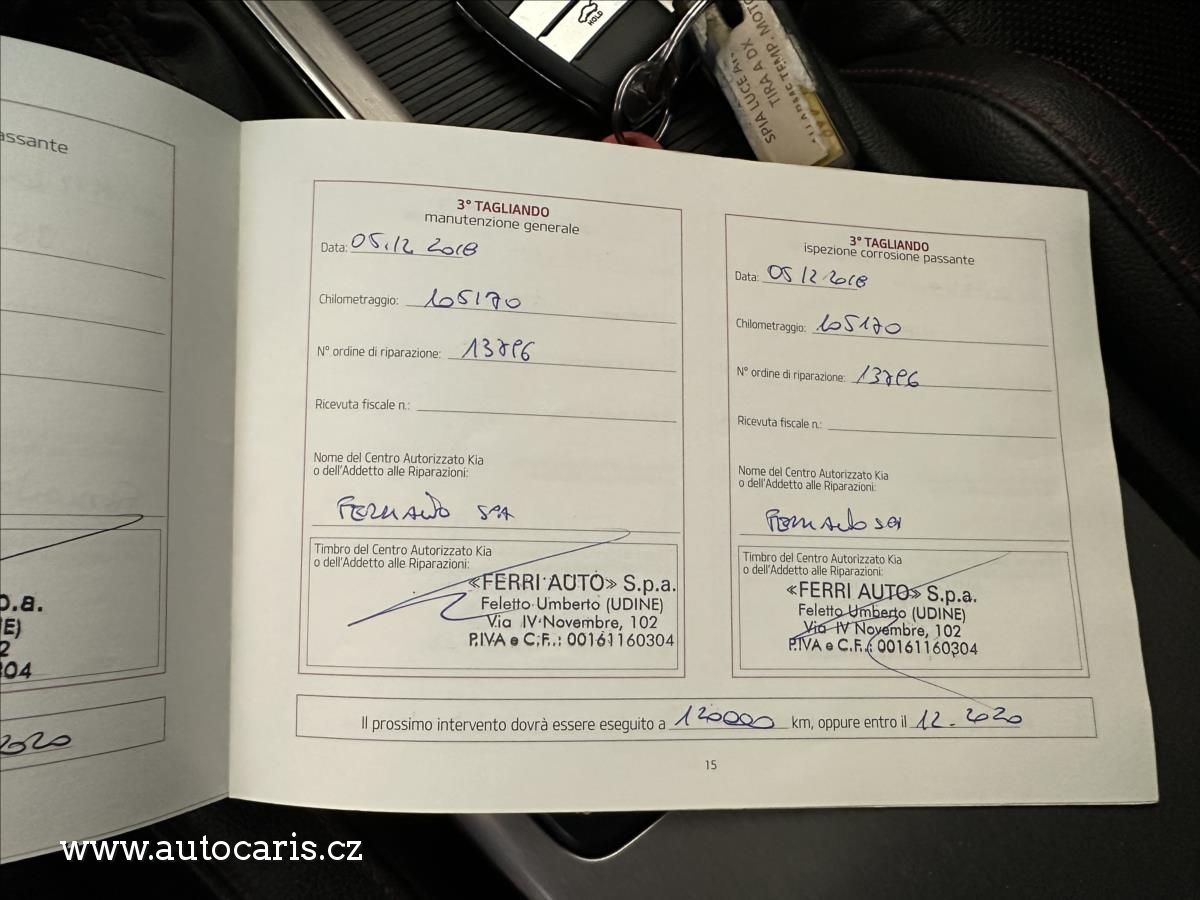 HOLD
SPIA LUCE
TIRA A DX
TEMP. MOTO
assante
p.a.
E)
2
04
2020
3° TAGLIANDO
manutenzione generale
Data: 05.12 2018
Chilometraggio: 105170
N° ordine di riparazione: 13796
Ricevuta fiscale n.:
Nome del Centro Autorizzato Kia
o dell'Addetto alle Riparazioni:
SPA
Timbro del Centro Autorizzato Kia
o dell'Addetto alle Riparazioni:
«FERRI AUTO» S.p.a.
Feletto Umberto (UDINE)
Via IV Novembre, 102
P.IVA e C.F.: 00161160304
3° TAGLIANDO
ispezione corrosione passante
Data: 05 12 2018
Chilometraggio: 105170
N° ordine di riparazione: 13796
Ricevuta fiscale n.:
Nome del Centro Autorizzato Kia
o dell'Addetto alle Riparazioni:
Timbro del Centro Autorizzato Kia
o dell'Addetto alle Riparazioni:
«FERRI AUTO» S.p.a.
Feletto Umberto (UDINE)
Via IV Novembre, 102
P.IVA e C.F.: 00161160304
Il prossimo intervento dovrà essere eseguito a 120000 km, oppure entro il 12 - 2020
15
www.autocaris.cz